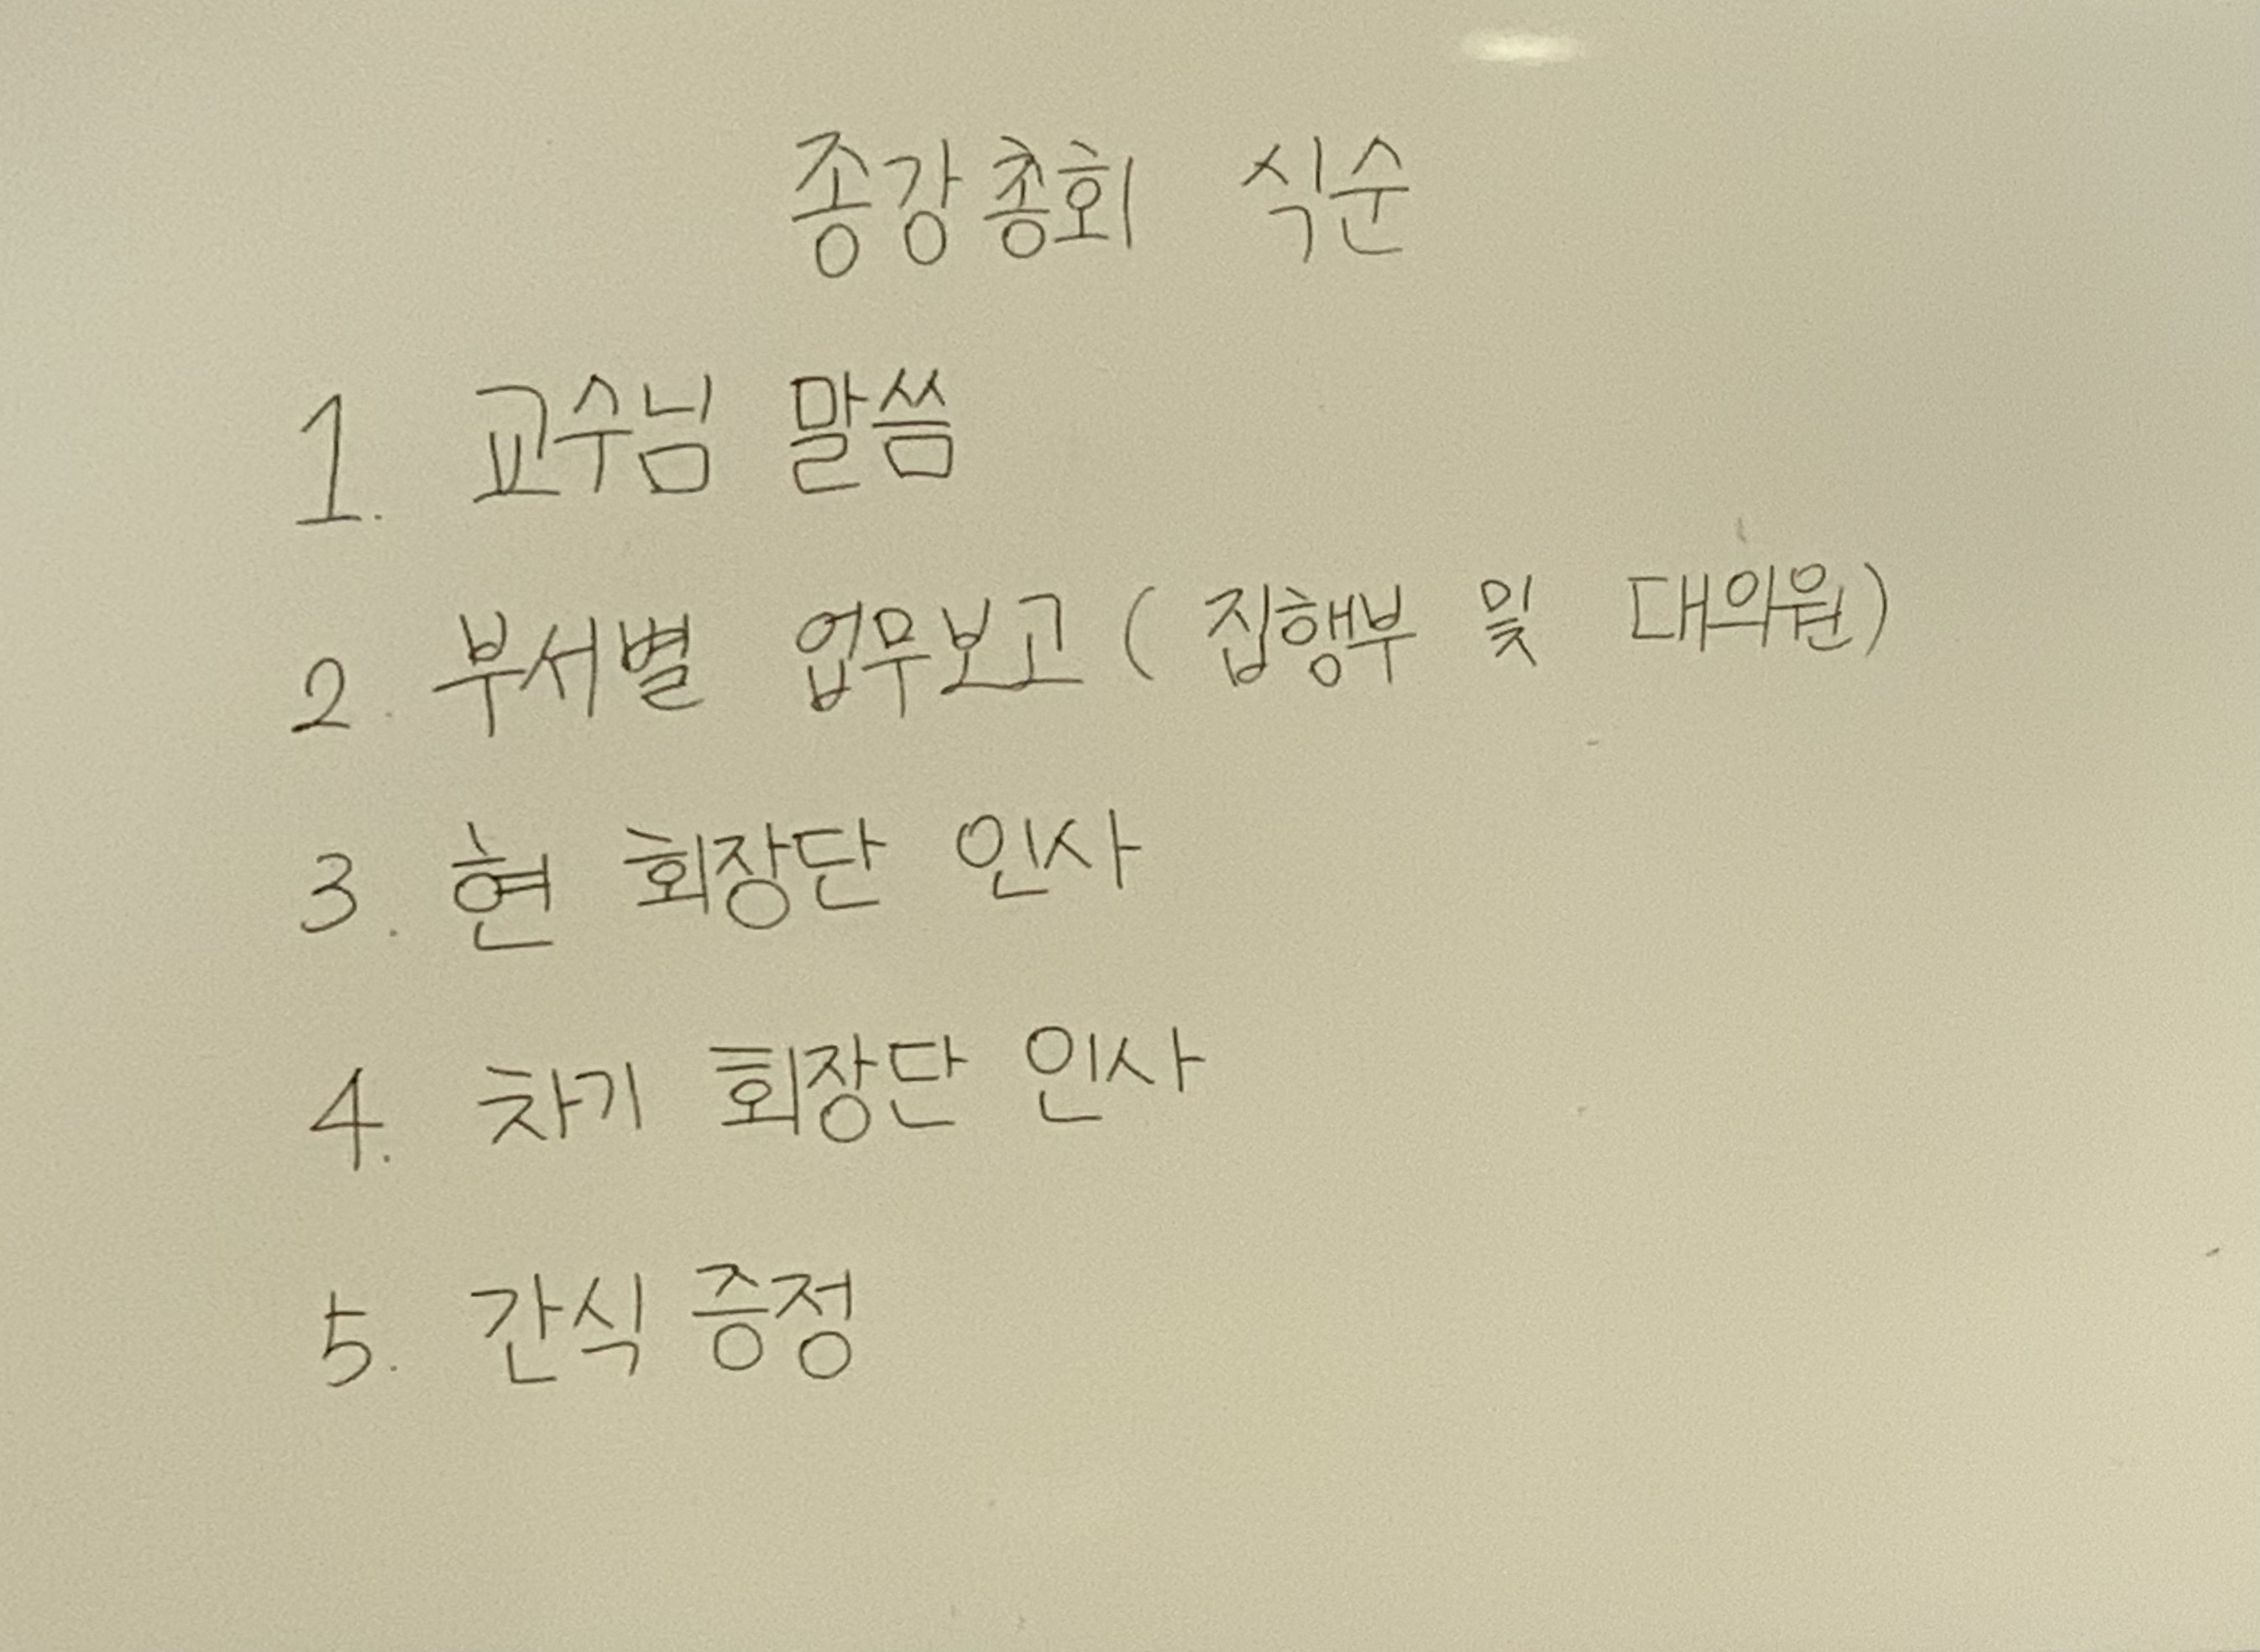 종강총회 식순
1. 교수님 말씀
2. 부서별 업무보고 ( 집행부 및 대의원)
3. 현 회장단 인사
4. 차기 회장단 인사
5. 간식 증정